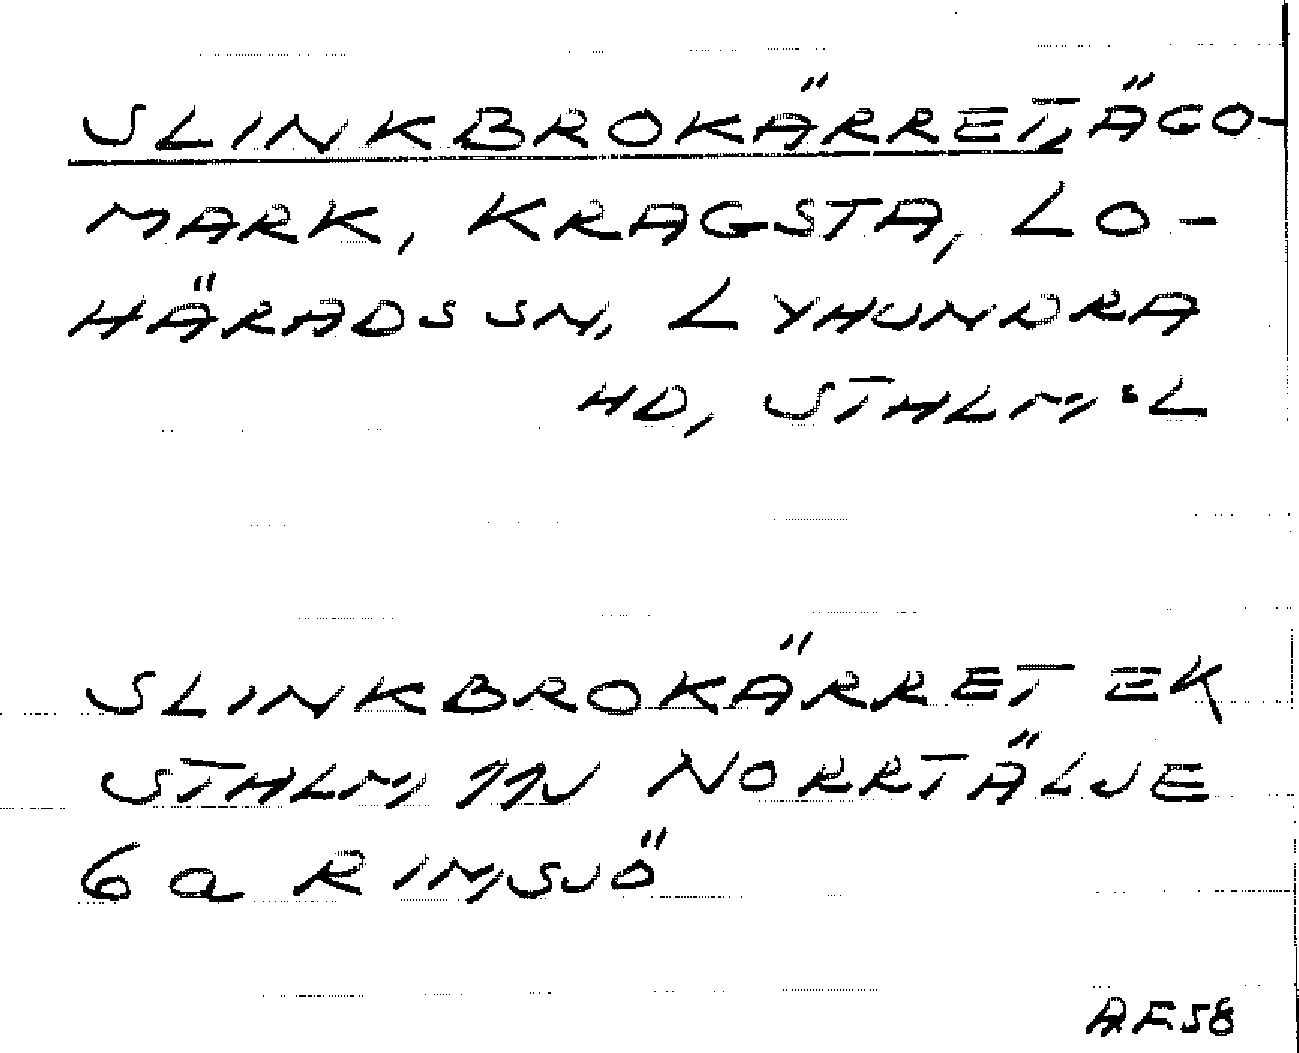 SLINKBROKÄRRET, ÄGO-
MARK, KRAGSTA, LO-
HÄRADS SN, LYHUNDRA
HD, STHLM:S L
SLINKBROKÄRRET EK
STHLM 11N NORRTÄLJE
6a RIMSJÖ
AF58